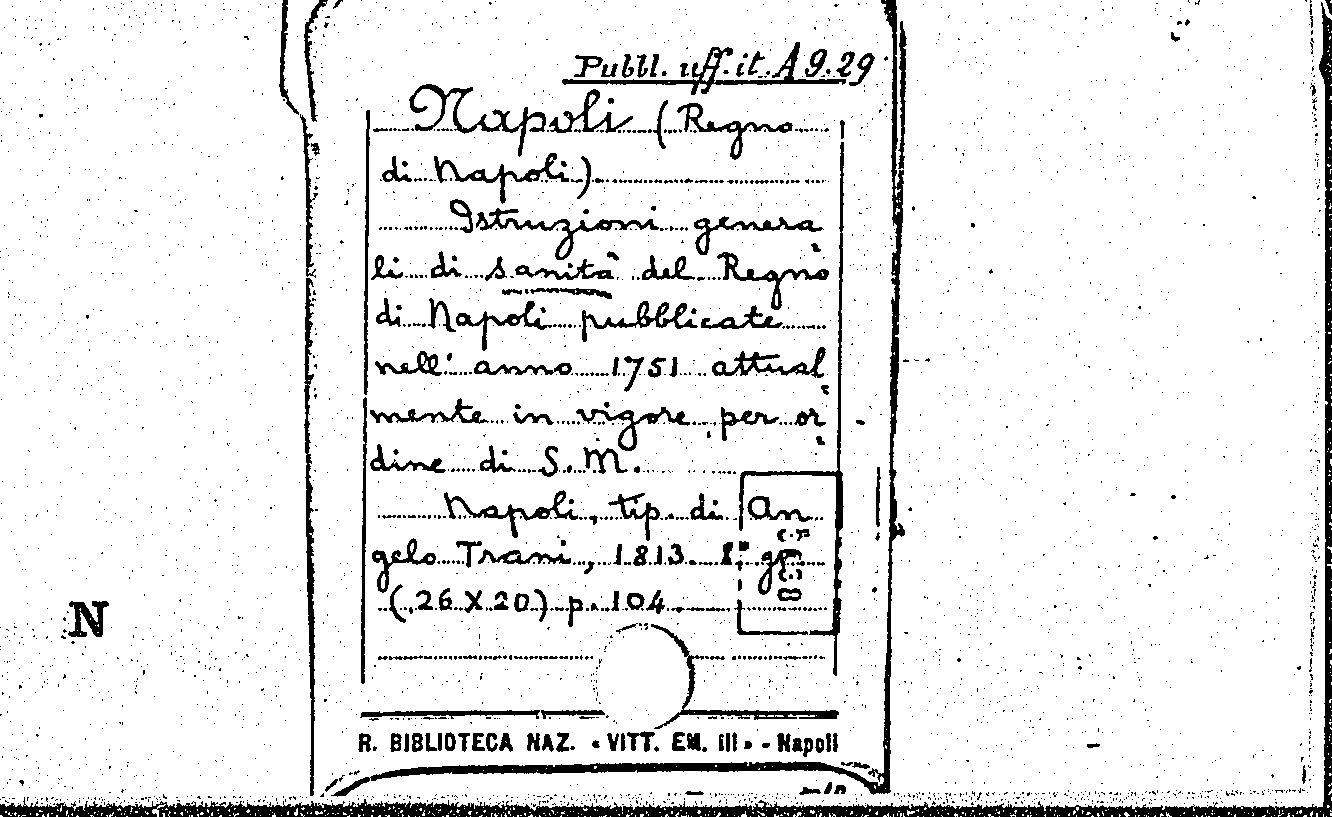 Pubbl. uff. it. A 9. 29
Napoli (Regno
di Napoli).
Istruzioni genera
li di sanità del Regno
di Napoli pubblicate
nell' anno 1751 attual
mente in vigore per or
dine di S. M.
Napoli, tip. di An
gelo Trani, 1813. 8°
(26 X 20) p. 104.
N
R. BIBLIOTECA NAZ. « VITT. EM. III » - Napoli